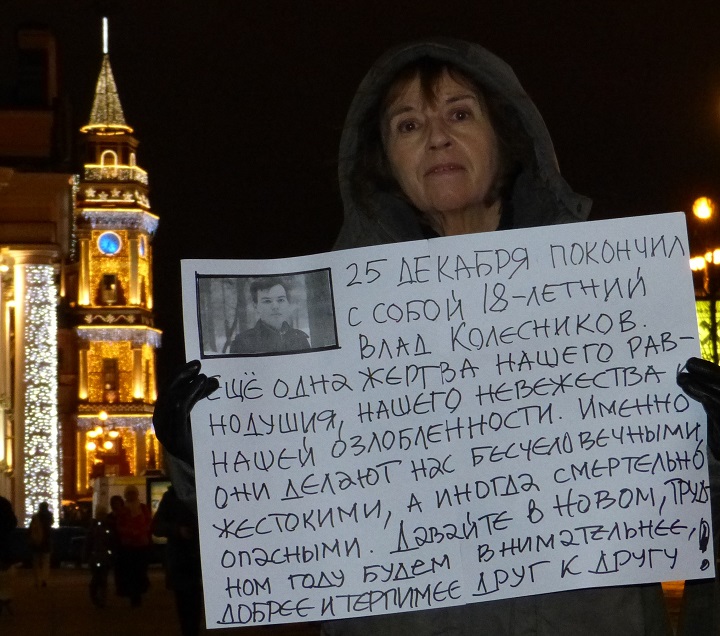 25 ДЕКАБРЯ ПОКОНЧИЛ
С СОБОЙ 18-ЛЕТНИЙ
ВЛАД КОЛЕСНИКОВ.
ЕЩЁ ОДНА ЖЕРТВА НАШЕГО РАВ-
НОДУШИЯ, НАШЕГО НЕВЕЖЕСТВА И
НАШЕЙ ОЗЛОБЛЕННОСТИ. ИМЕННО
ОНИ ДЕЛАЮТ НАС БЕСЧЕЛОВЕЧНЫМИ,
ЖЕСТОКИМИ, А ИНОГДА СМЕРТЕЛЬНО
ОПАСНЫМИ. ДАВАЙТЕ В НОВОМ, ТРУД-
НОМ ГОДУ БУДЕМ ВНИМАТЕЛЬНЕЕ,
ДОБРЕЕ И ТЕРПИМЕЕ ДРУГ К ДРУГУ!